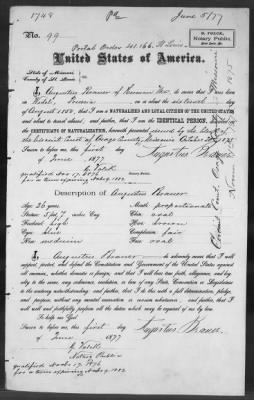 1748
June 5/77
No. 99.
Postal Order 41.166. St Louis
United States of America.
State of Missouri
County of St Louis
I, Augustus Brauer of
do swear that I was born at
Prussia on or about the
August, 1850, that I am a NATURALIZED AND LOYAL CITIZEN OF THE UNITED STATES
and about to travel abroad; and further, that I am the IDENTICAL PERSON, described in
the CERTIFICATE OF NATURALIZATION, herewith presented
the Circuit Court of Osage County, Missouri October
Sworn to before me, this first day
of June 1877
Augustus Brauer
qualified Nov. 17, 1876
Notary Public.
Description of Augustus Brauer
Age 26 years
Mouth proportionate
Stature 5 feet 7 inches Eng.
Chin oval
Forehead high
Hair brown
Eyes blue
Complexion fair
Nose medium
Face oval
I, Augustus Brauer do solemnly swear that I will
support, protect and defend the Constitution and Government of the United States against
all enemies, whether domestic or foreign, and that I will bear true faith, allegiance, and loy-
alty to the same, any ordinance, resolution or law of any State, Convention or Legislature
to the contrary notwithstanding; and further, that I do this with a full determination, pledge,
and purpose, without any mental reservation or evasion whatsoever; and further, that I
will well and faithfully perform all the duties which may be required of me by law.
So help me God
Sworn to before me, this first day
of June 1877
Augustus Brauer
Notary Public
qualified Nov. 17, 1876